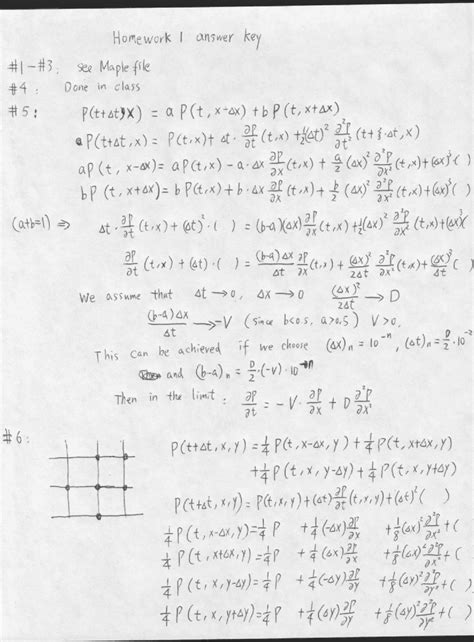 Homework 1 answer key
#1-#3: see Maple file
#4: Done in class
#5: P(t+Δt,x) = a P(t, x-Δx) + b P(t, x+Δx)
P(t+Δt, x) = P(t,x) + Δt · ∂P/∂t (t,x) + 1/2 (Δt)² ∂²P/∂t² (t+ξ·Δt, x)
a P(t, x-Δx) = a P(t,x) - a·Δx ∂P/∂x (t,x) + a/2 (Δx)² ∂²P/∂x² (t,x) + (Δx)³ ( )
b P(t, x+Δx) = b P(t,x) + b·Δx ∂P/∂x (t,x) + b/2 (Δx)² ∂²P/∂x² (t,x) + (Δx)³ ( )
(a+b=1) ⇒ Δt · ∂P/∂t (t,x) + (Δt)² · ( ) = (b-a)(Δx) ∂P/∂x (t,x) + 1/2 (Δx)² ∂²P/∂x² (t,x) + (Δx)³ (
∂P/∂t (t,x) + (Δt) · ( ) = (b-a)Δx/Δt ∂P/∂x (t,x) + (Δx)²/2Δt ∂²P/∂x² (t,x) + (Δx)³/Δt (
We assume that Δt → 0, Δx → 0 (Δx)²/2Δt → D
(b-a)Δx/Δt → -V (since b<0.5, a>0.5) V>0.
This can be achieved if we choose (Δx)n = 10^-n, (Δt)n = D/2 · 10^-2n
and (b-a)n = D/2 · (-V) · 10^-n
Then in the limit: ∂P/∂t = - V · ∂P/∂x + D ∂²P/∂x²
#6: P(t+Δt, x, y) = 1/4 P(t, x-Δx, y) + 1/4 P(t, x+Δx, y)
+ 1/4 P(t, x, y-Δy) + 1/4 P(t, x, y+Δy)
P(t+Δt, x, y) = P(t, x, y) + (Δt) ∂P/∂t (t, x, y) + (Δt)² ( )
1/4 P(t, x-Δx, y) = 1/4 P + 1/4 (-Δx) ∂P/∂x + 1/8 (Δx)² ∂²P/∂x² + (
1/4 P(t, x+Δx, y) = 1/4 P + 1/4 (Δx) ∂P/∂x + 1/8 (Δx)² ∂²P/∂x² + (
1/4 P(t, x, y-Δy) = 1/4 P + 1/4 (-Δy) ∂P/∂y + 1/8 (Δy)² ∂²P/∂y² + ( )
1/4 P(t, x, y+Δy) = 1/4 P + 1/4 (Δy) ∂P/∂y + 1/8 (Δy)² ∂²P/∂y² + ( )